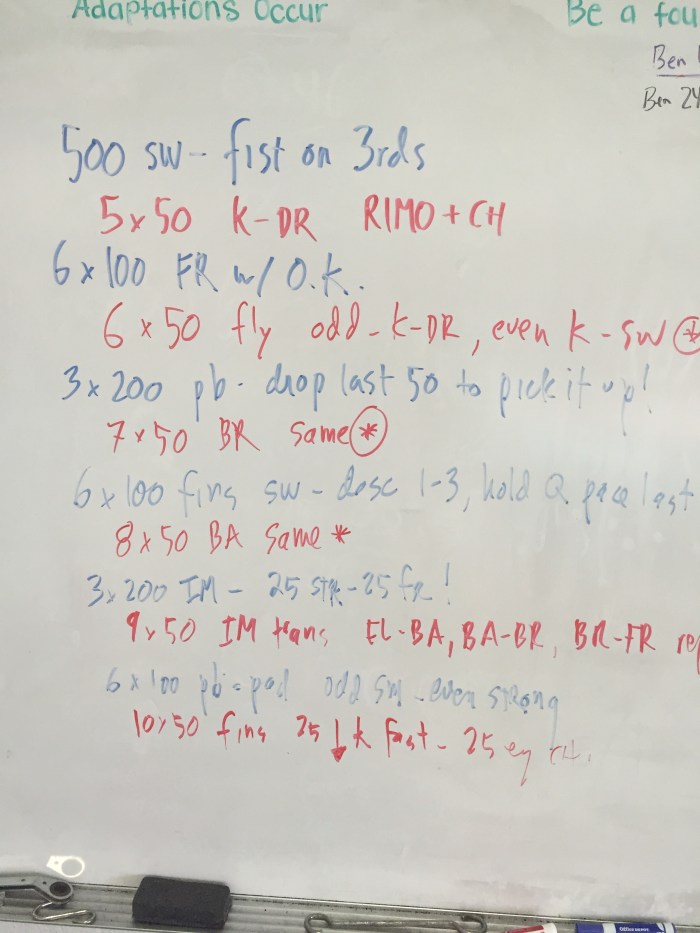 Adaptations Occur
Be a fou
Ben
Ben 24
500 SW - fist on 3rds
5x50 K-DR RIMO + CH
6x100 FR w/ O.K.
6x50 fly odd - K-DR, even K-SW *
3x200 pb - drop last 50 to pick it up!
7x50 BR Same *
6x100 fins SW - desc 1-3, hold Q pace last
8x50 BA Same *
3x200 IM - 25 STK - 25 fr!
9x50 IM trans FL-BA, BA-BR, BR-FR rep
6x100 pb + pad odd sm - even strong
10x50 fins 25 ↓ K fast - 25 ey CH.
Office DEPOT